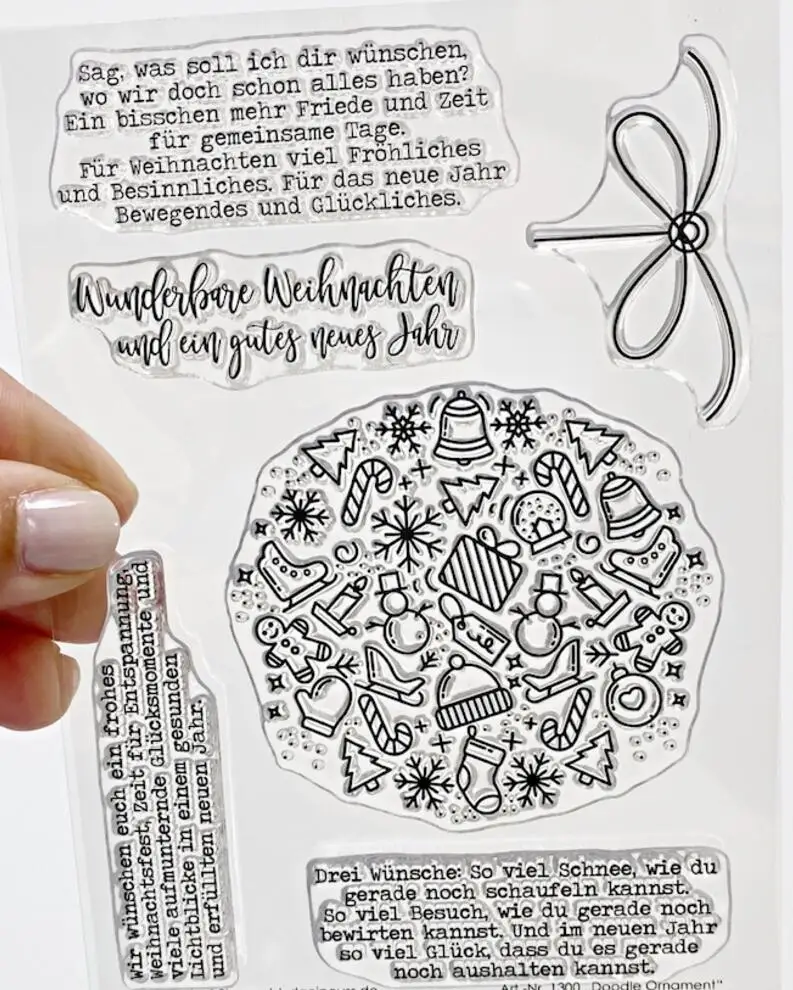 Sag, was soll ich dir wünschen,
wo wir doch schon alles haben?
Ein bisschen mehr Friede und Zeit
für gemeinsame Tage.
Für Weihnachten viel Fröhliches
und Besinnliches. Für das neue Jahr
Bewegendes und Glückliches.
Wunderbare Weihnachten
und ein gutes neues Jahr
Wir wünschen euch ein frohes
Weihnachtsfest, Zeit für Entspannung,
viele aufmunternde Glücksmomente und
Lichtblicke in einem gesunden
und erfüllten neuen Jahr.
Drei Wünsche: So viel Schnee, wie du
gerade noch schaufeln kannst.
So viel Besuch, wie du gerade noch
bewirten kannst. Und im neuen Jahr
so viel Glück, dass du es gerade
noch aushalten kannst.
Art.-Nr. 1300 „Doodle Ornament"